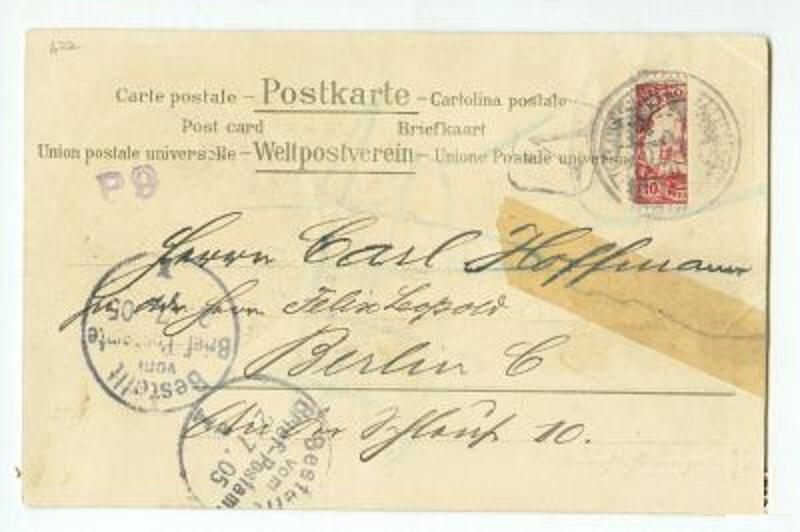 622
Carte postale – Postkarte – Cartolina postale
Post card Briefkaart
Union postale universelle – Weltpostverein – Unione Postale univers
P9
10
Herrn Carl Hoffmann
Herrn Felix Leopold
Berlin C
An der Schleuse 10.
Bestellt
vom
Brief-Postamte
7. 05
Bestellt
vom
Brief-Postam
2 7. 05